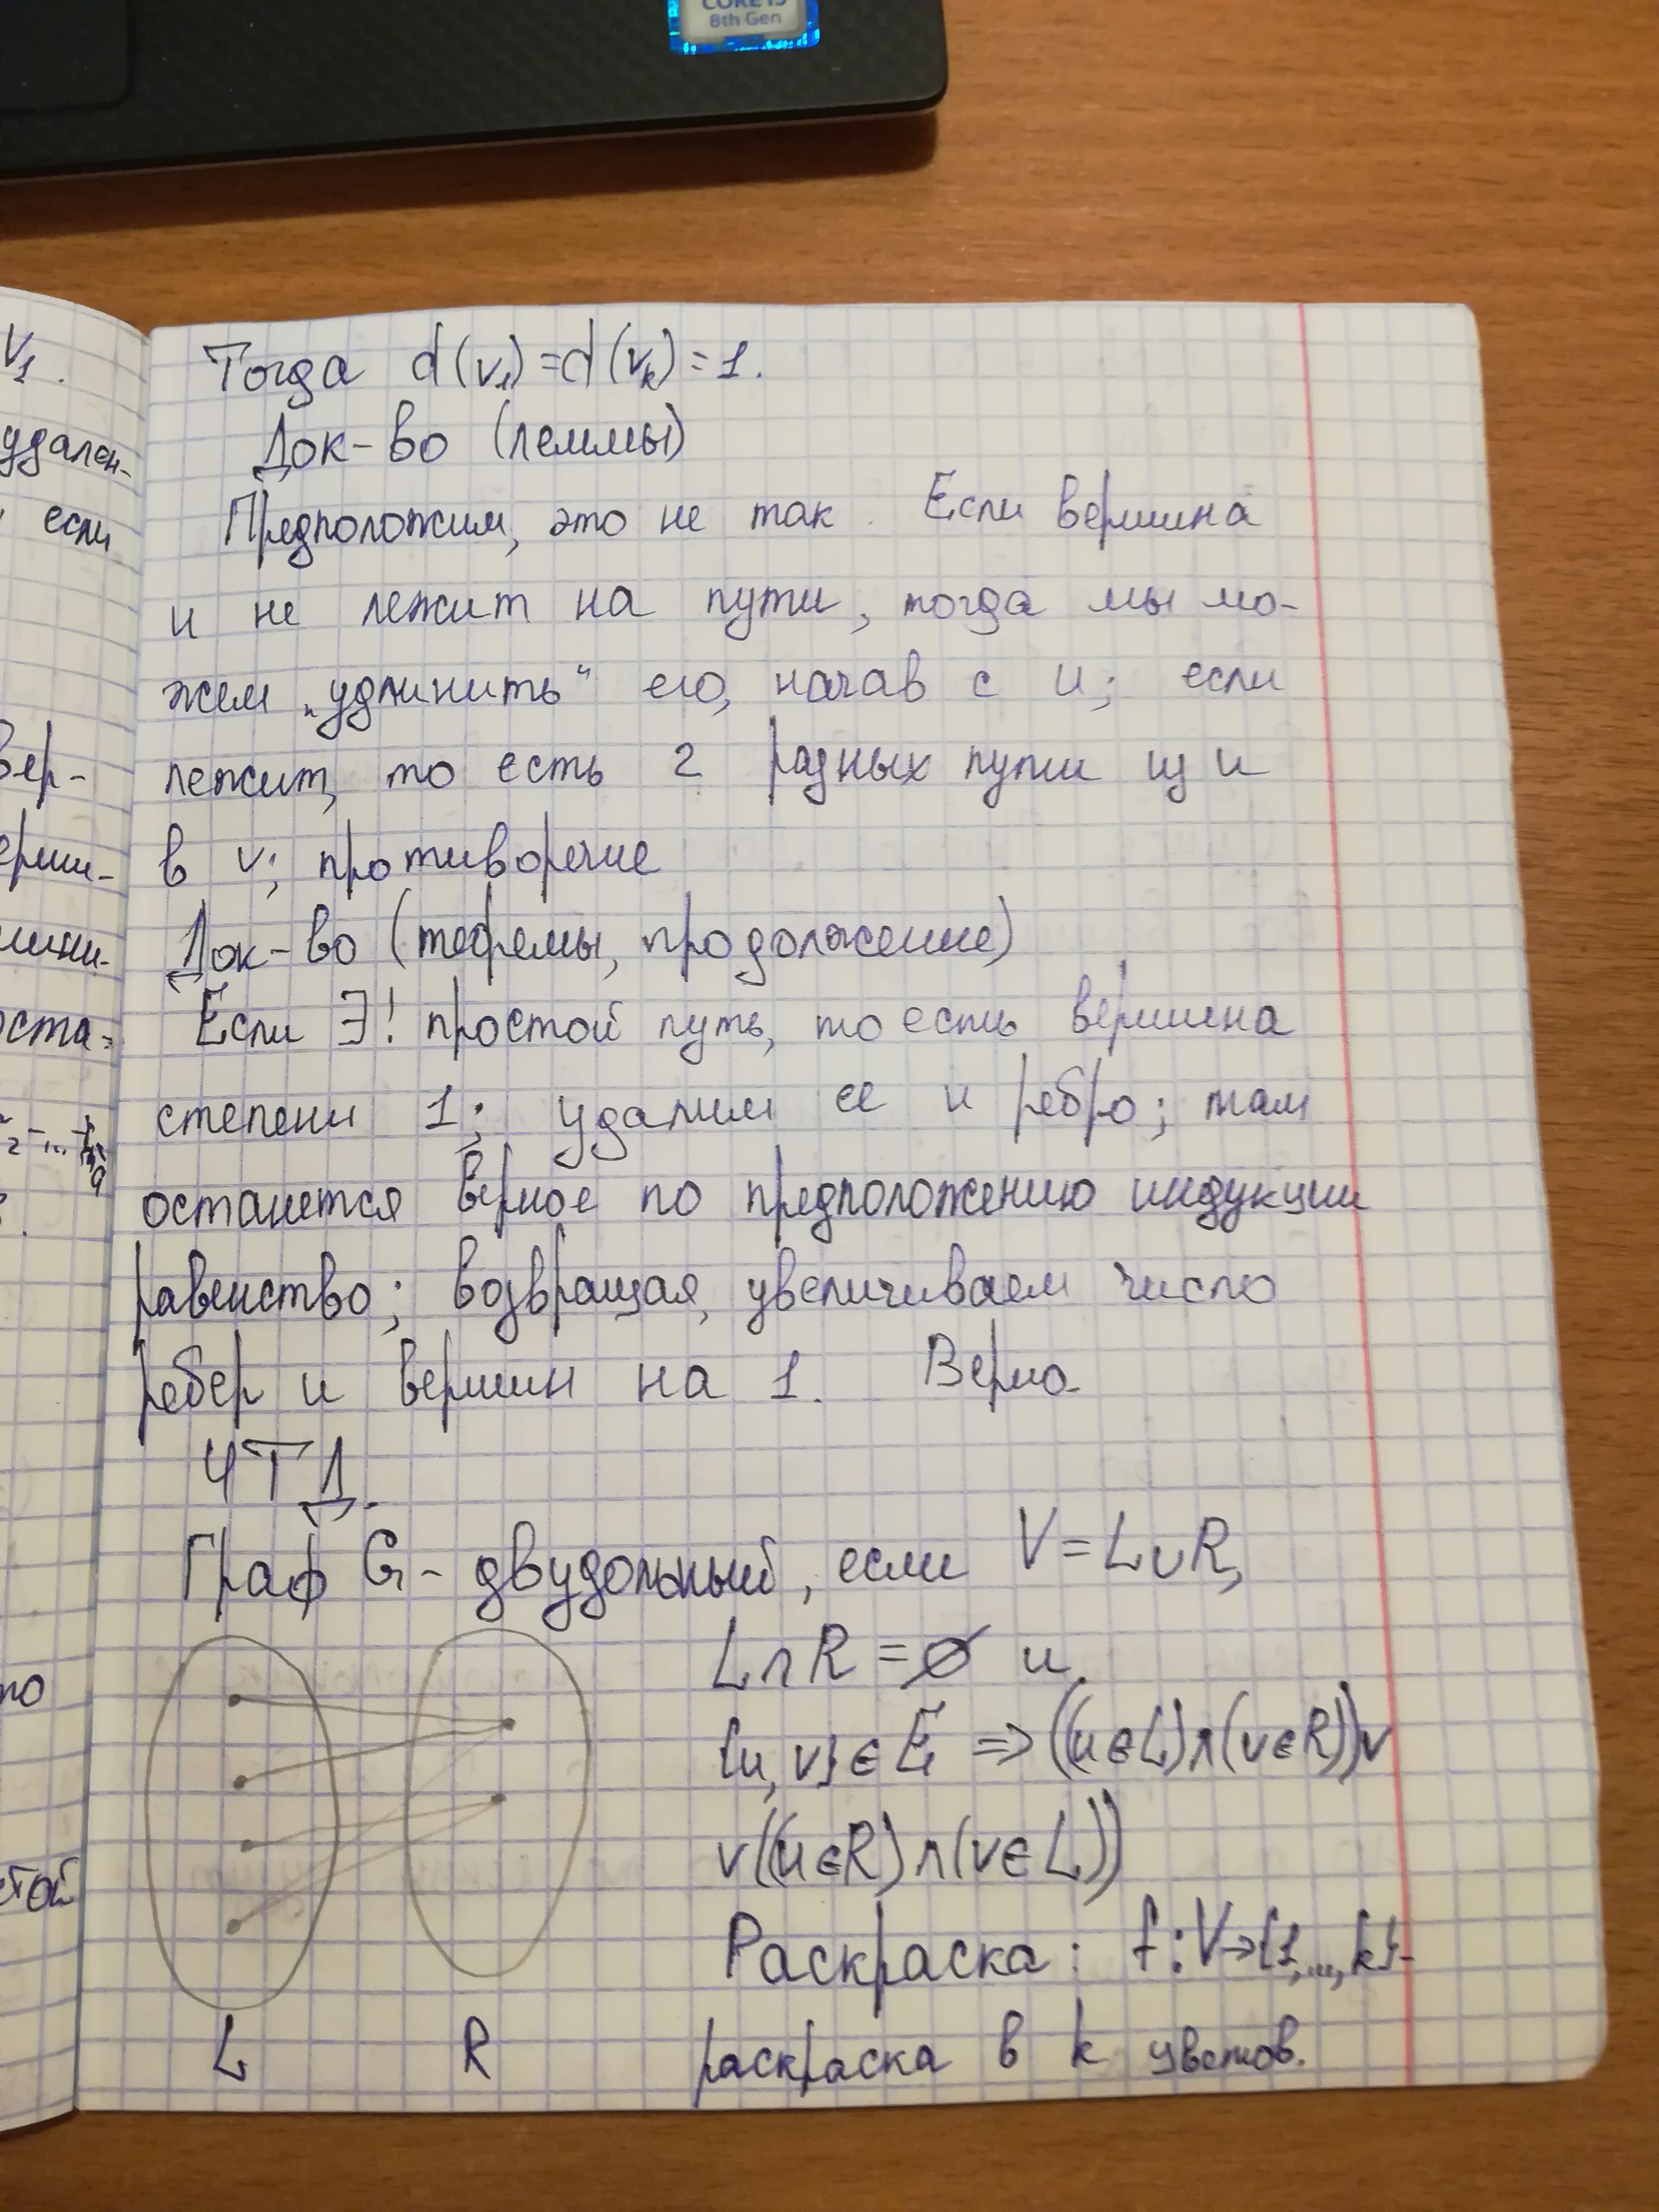 CORE i5
8th Gen
V₁.
удален-
если
вер-
ерши-
оста-
стой
Тогда d(v₁)=d(vₖ)=1.
Док-во (леммы)
Предположим, это не так. Если вершина
u не лежит на пути, тогда мы мо-
жем „удлинить“ его, начав с u; если
лежит, то есть 2 разных пути из u
в v; противоречие
Док-во (теоремы, продолжение)
Если ∃! простой путь, то есть вершина
степени 1; удалим ее и ребро; там
останется верное по предположению индукции
равенство; возвращая, увеличиваем число
ребер и вершин на 1. Верно.
ЧТД.
Граф G - двудольный, если V=L∪R,
L∩R=∅ и
{u,v}∈E ⇒ ((u∈L)∧(v∈R))∨
∨((u∈R)∧(v∈L))
Раскраска: f:V→{1,...,k}-
L R раскраска в k цветов.